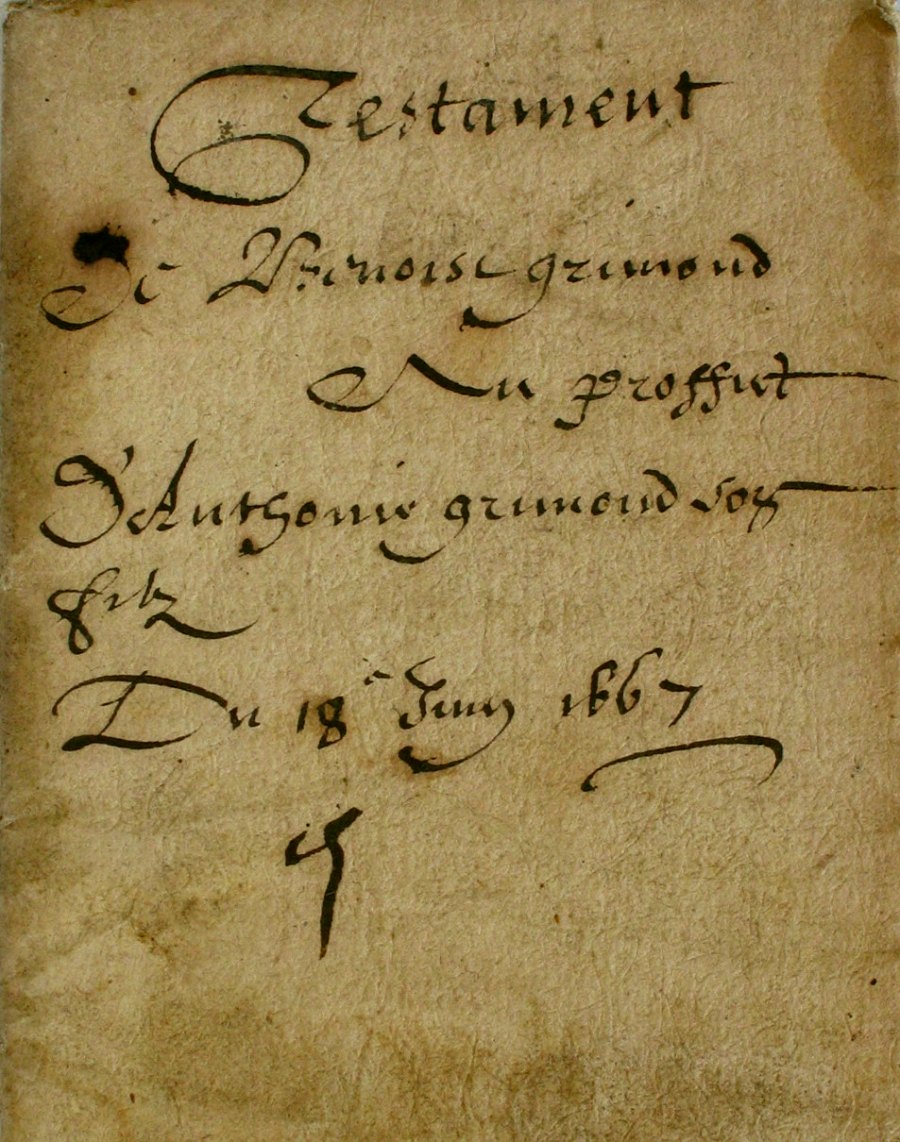 Testament
De Benoist grimond
Au proffict
D'Anthonie grimond son
filz
Du 18e Juin 1667